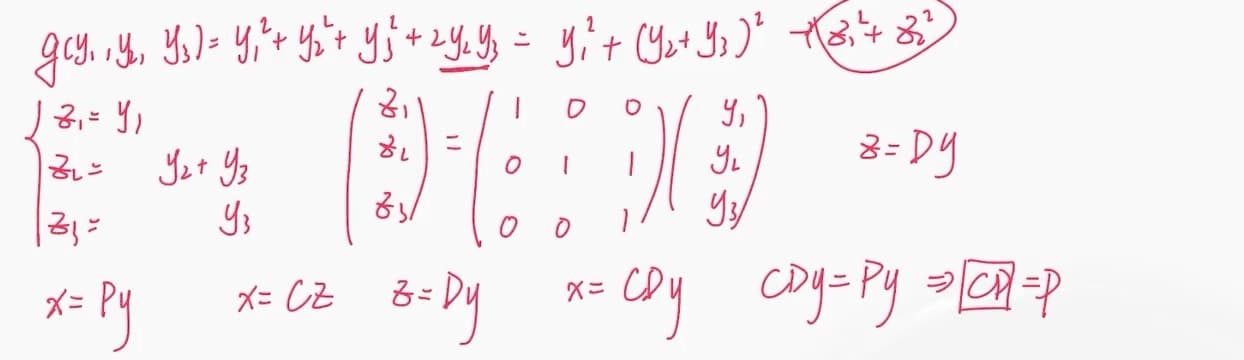 g(y₁, y₂, y₃) = y₁² + y₂² + y₃² + 2y₂y₃ = y₁² + (y₂ + y₃)² → z₁² + z₂²
{ z₁ = y₁
z₂ = y₂ + y₃
z₃ = y₃
(z₁ z₂ z₃) = (1 0 0 0 1 1 0 0 1) (y₁ y₂ y₃)
z = Dy
x = Py x = CZ z = Dy x = CDy CDy = Py ⇒ CD = P